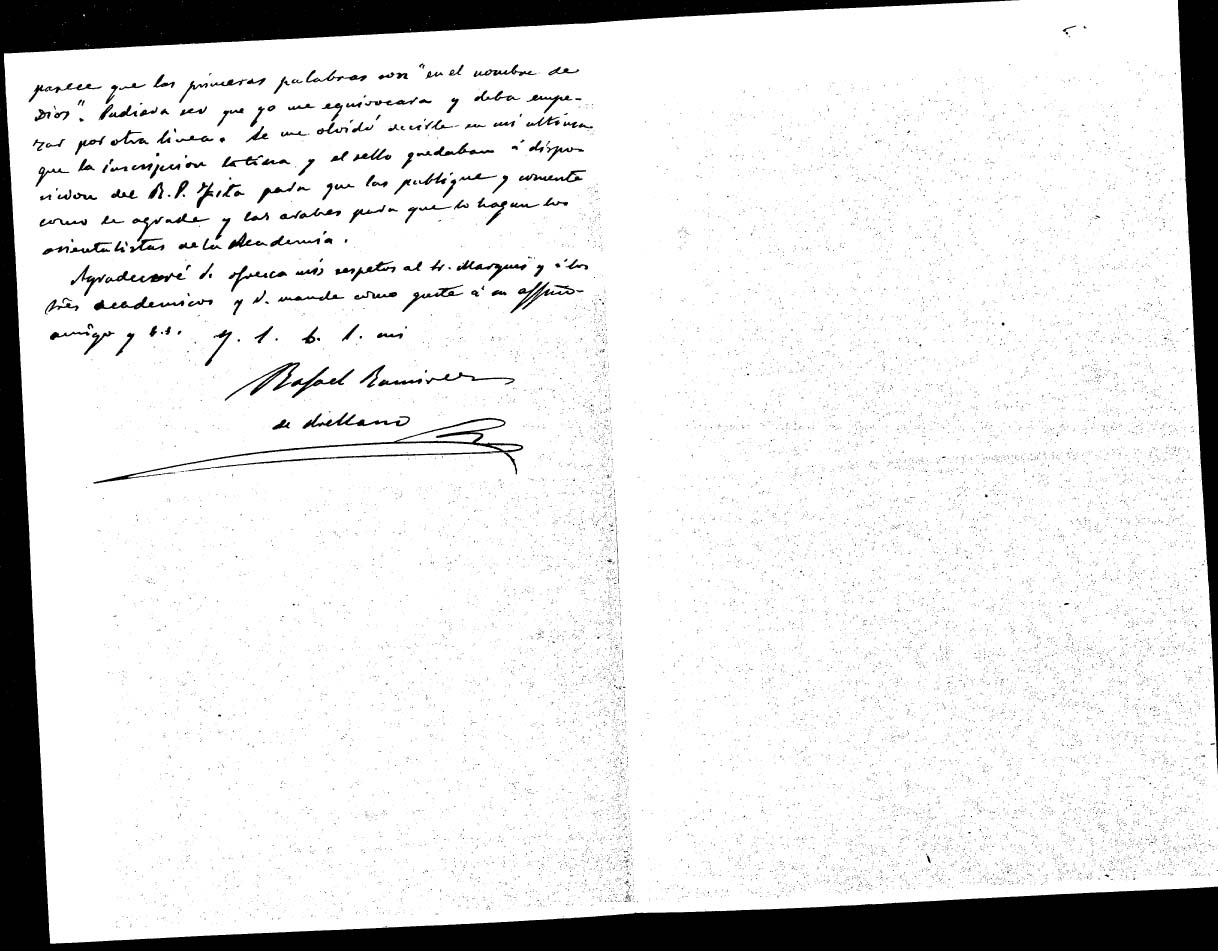 parece que las primeras palabras son "en el nombre de
Dios". Pudiera ser que yo me equivocara y deba empe-
zar por otra linea. Se me olvidó decirle en mi ultima
que la inscripcion latina y el sello quedaban á dispo-
sicion del R. P. Fita para que las publique y comente
como le agrade y las arabes para que lo hagan los
orientalistas de la Academia.
Agradeceré V. ofrezca mis respetos al Sr. Marqués y á los
tres academicos y V. mande como guste á su affmo
amigo y s.s. q. l. b. l. m
Rafael Ramirez
de Arellano